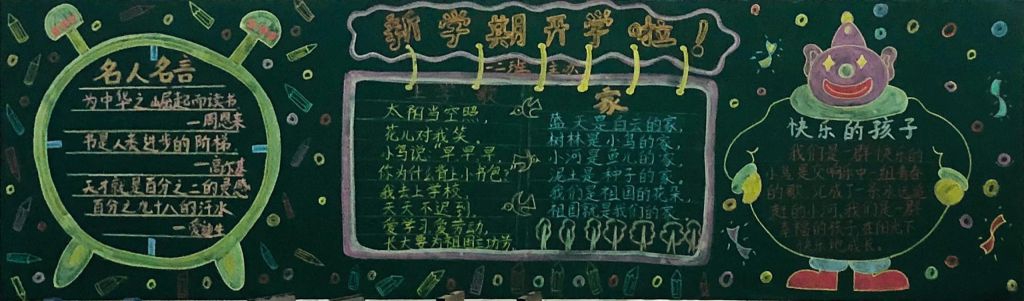 名人名言
为中华之崛起而读书
—周恩来
书是人类进步的阶梯
—高尔基
天才就是百分之二的灵感
百分之九十八的汗水
—爱迪生
新学期开学啦！
二班 主办
太阳当空照,
花儿对我笑,
小鸟说:早早早,
你为什么背上小书包?
我去上学校,
天天不迟到,
爱学习爱劳动,
长大要为祖国立功劳
家
蓝天是白云的家,
树林是小鸟的家,
小河是鱼儿的家,
泥土是种子的家,
我们是祖国的花朵,
祖国就是我们的家
快乐的孩子
我们是一群快乐的
小鸟是父啊你中一组青春
的歌,汇成了一条永远
赶的小河,我们是一群
幸福的孩子,在阳光下
快乐地成长。